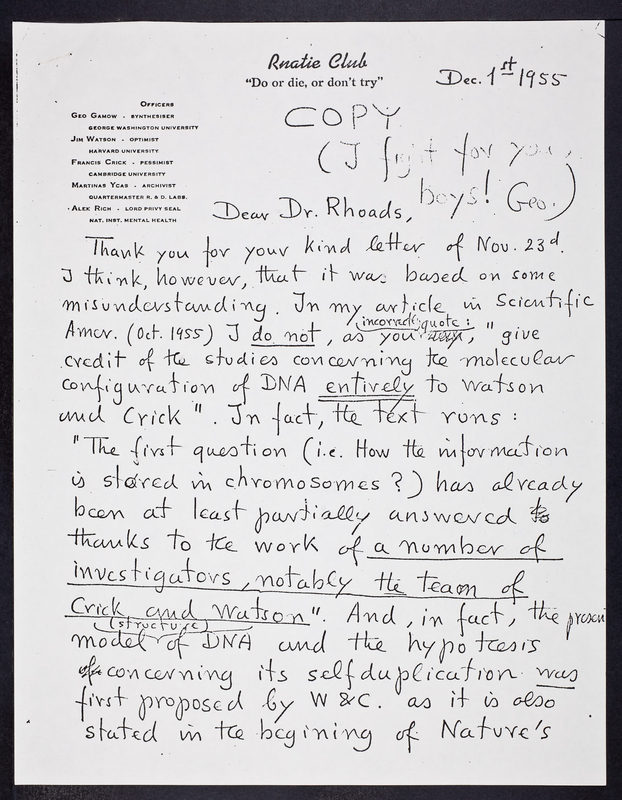 Rnatie Club
"Do or die, or don't try"
Dec. 1st 1955
Officers
Geo Gamow - Synthesiser
George Washington University
Jim Watson - Optimist
Harvard University
Francis Crick - Pessimist
Cambridge University
Martinas Ycas - Archivist
Quartermaster R. & D. Labs.
Alex Rich - Lord Privy Seal
Nat. Inst. Mental Health
COPY
(I fight for you,
boys! Geo.)
Dear Dr. Rhoads,
Thank you for your kind letter of Nov. 23d.
I think, however, that it was based on some
misunderstanding. In my article in Scientific
Amer. (Oct. 1955) I do not, as you incorrectly quote: , "give
credit of the studies concerning the molecular
configuration of DNA entirely to Watson
and Crick". In fact, the text runs:
"The first question (i.e. How the information
is stored in chromosomes?) has already
been at least partially answered
thanks to the work of a number of
investigators, notably the team of
Crick and Watson". And, in fact, the present
model (structure) of DNA and the hypotesis
concerning its selfduplication was
first proposed by W & C. as it is also
stated in the begining of Nature's